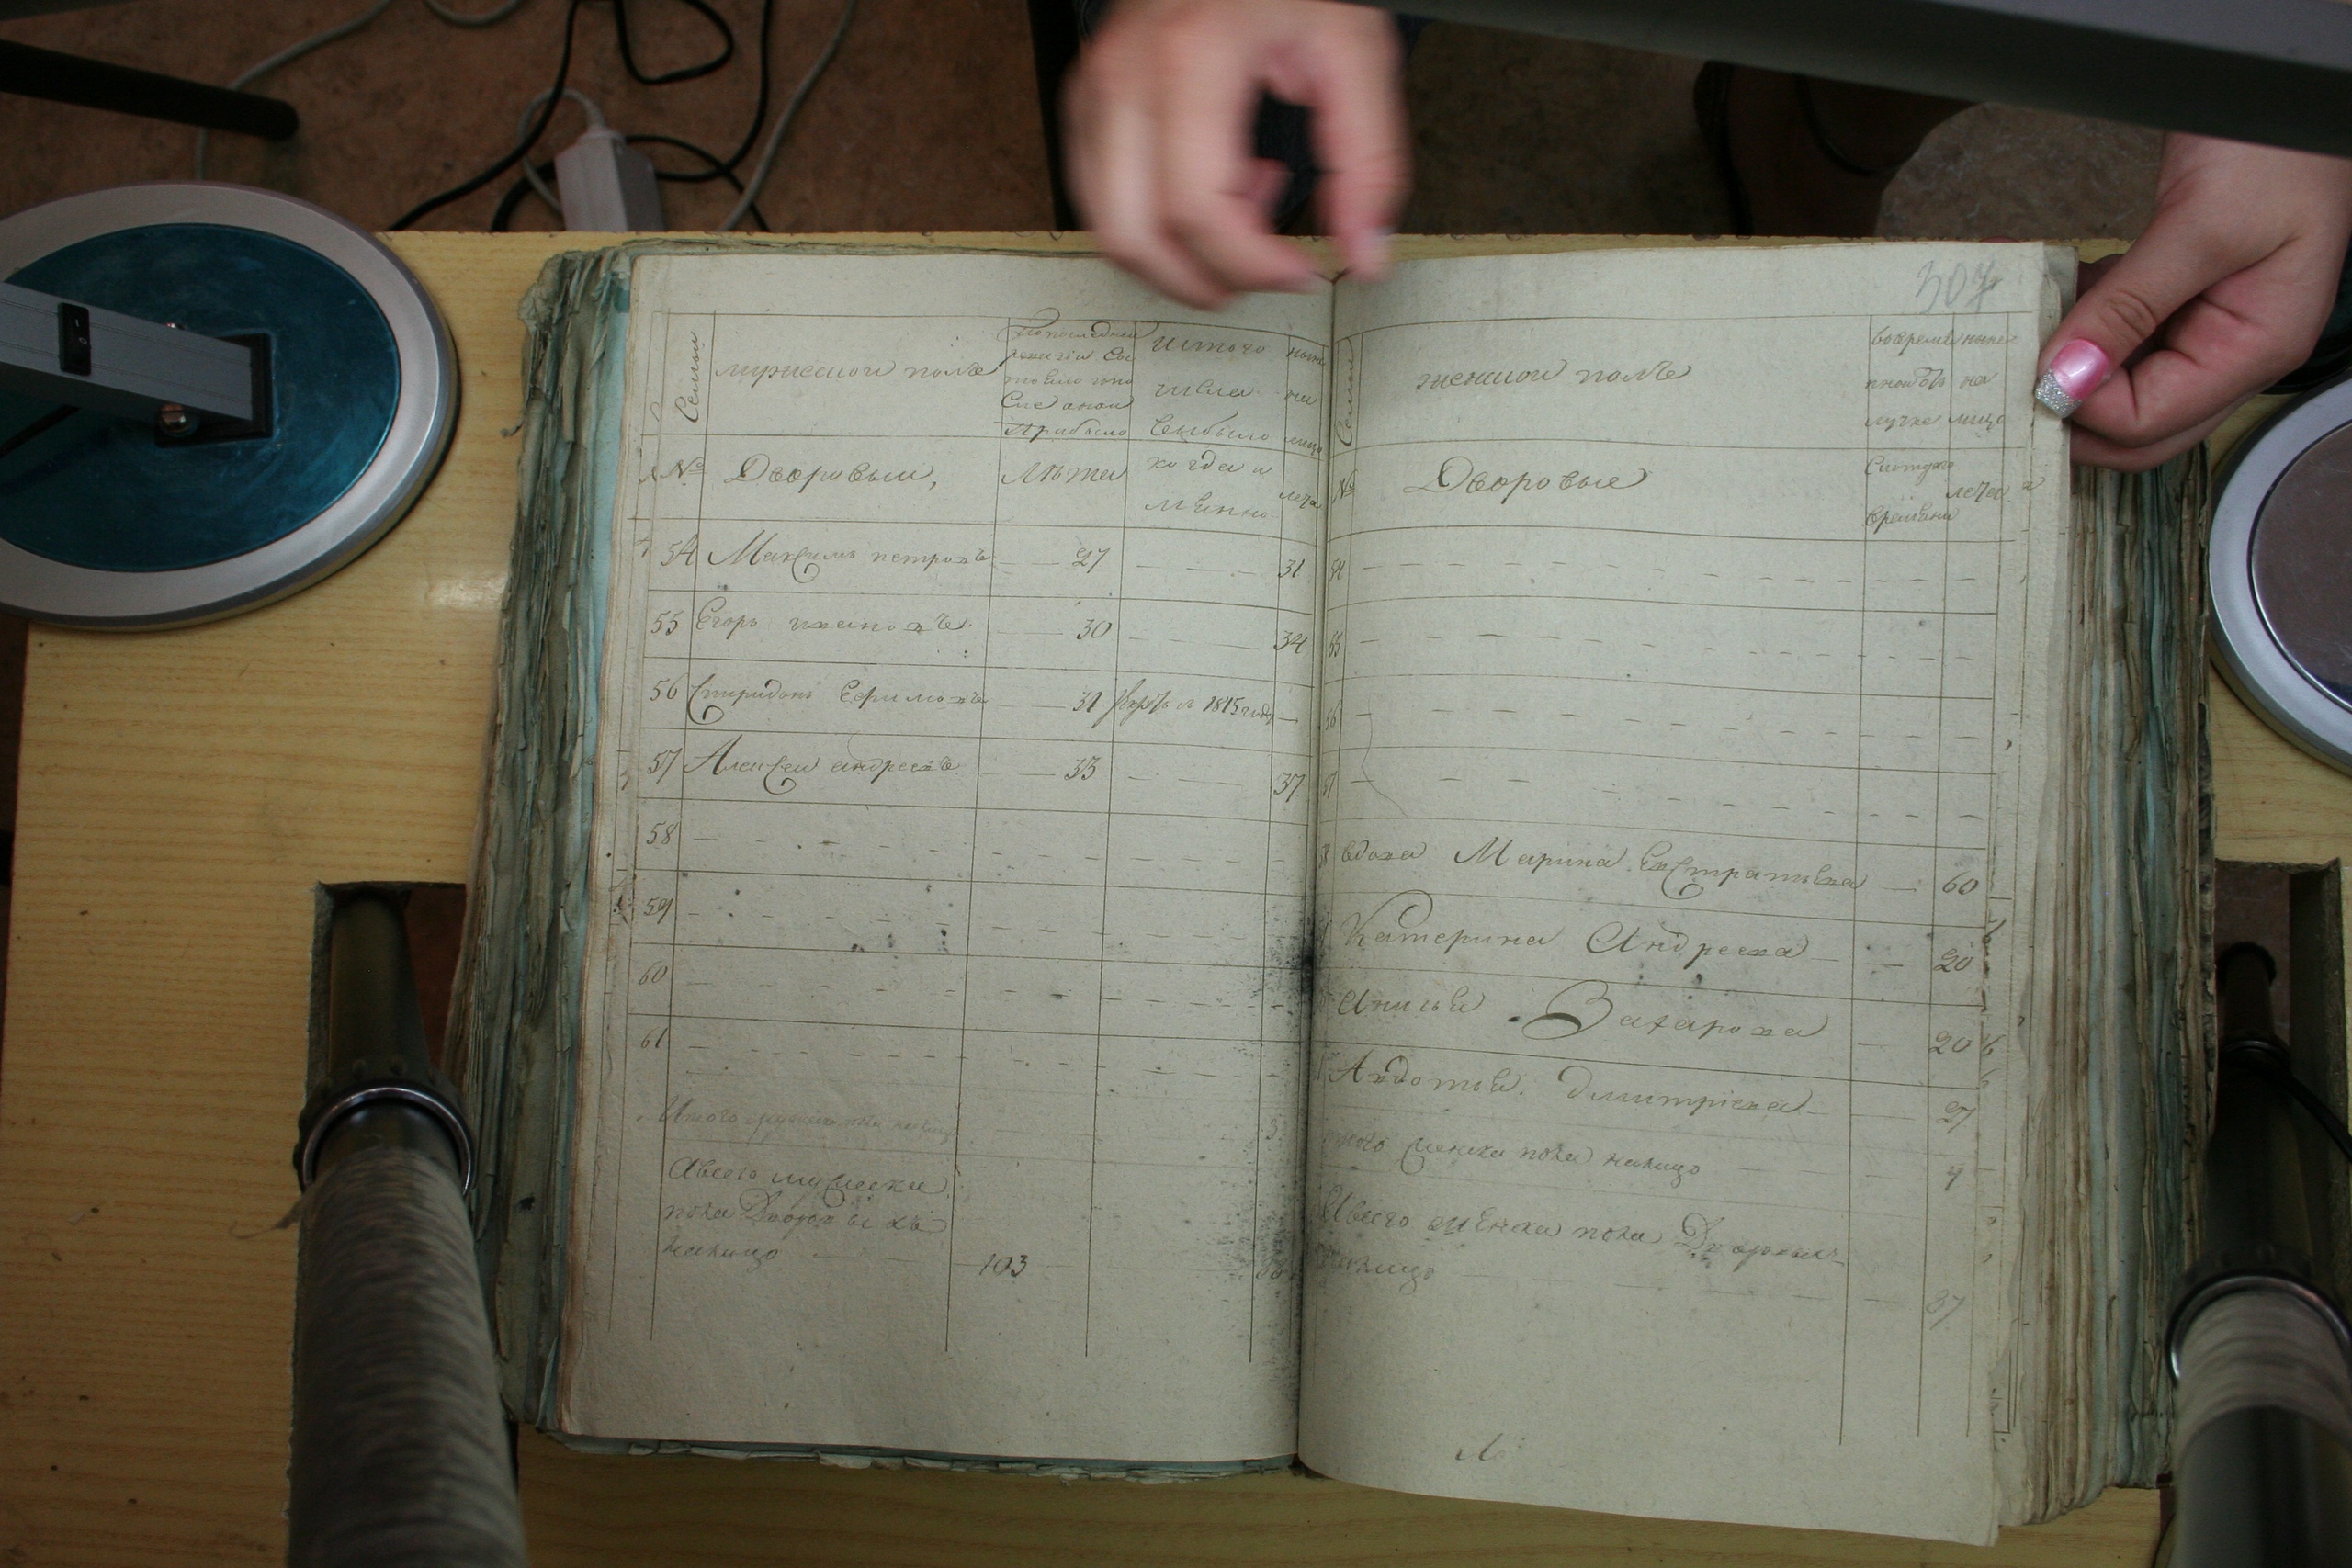 307
Семьи
мужескои полъ
По последней
ревизіи Сос
тояло и по
Сле оной
прибыло
И того
числа
выбыло
ныне
на
лицо
№
Дворовыи,
Лѣта
когда и
мѣнно
лета
54 Максимъ петровъ 27 31
55 Егоръ ивановъ 30 34
56 Спиридонъ Ефимовъ 31 1815 году
57 Алексеи андреевъ 33 37
58
59
60
61
Итого мужеска пола налицо
Авсего мужеска
пола Дворовыхъ
налицо 103
Семьи
женскои полъ
вовремѣ
нной отъ
лучке
ныне
на
лицо
№
Дворовые
Скотораго
времѣни
лета
54
55
56
57
58 вдова Марина Евстратьева 60
Катерина Андреева 20
Анисья Захарова 20
Авдотья Дмитріева 27
итого женска пола налицо 4
Авсего женска пола Дворовыхъ
налицо 37